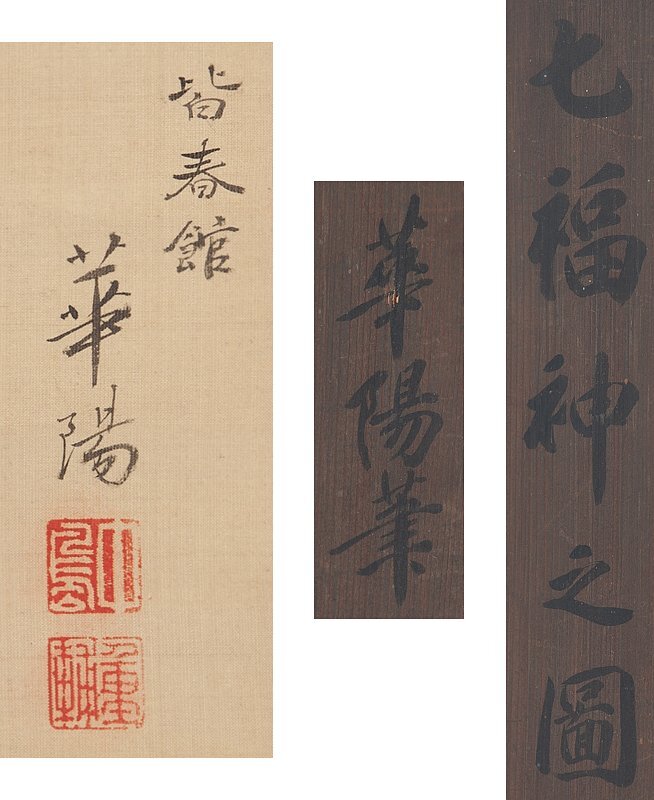 七福神之圖
華陽筆
皆春館
華陽